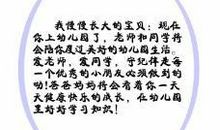 我慢慢长大的宝贝：现在
你上幼儿园了，老师和同学将
会陪你度过美好的幼儿园生活。
爱老师，爱同学，守纪律是每
一个优秀的小朋友必须做到的
哟！爸爸妈妈将会看着你一天
天健康快乐的成长，在幼儿园
里好好学习知识！